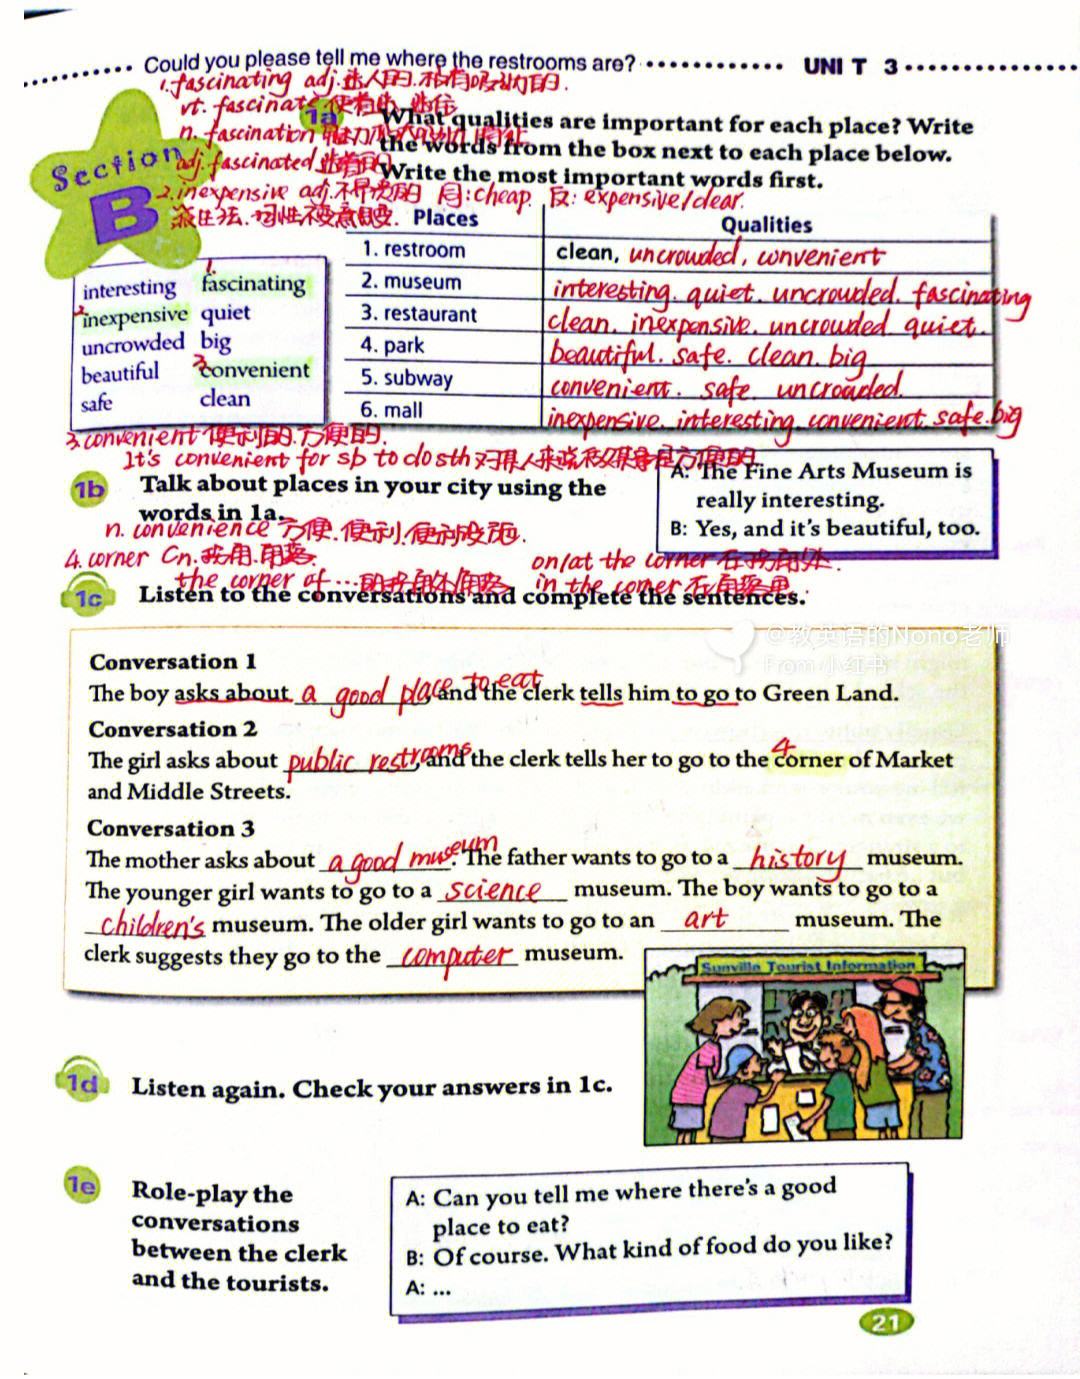 Could you please tell me where the restrooms are?
UNIT 3
1. fascinating adj. 迷人的.极有吸引力的.
vt. fascinate
n. fascination
adj. fascinated
2. inexpensive adj. 不昂贵的 同: cheap 反: expensive/dear.
Section B
1a
What qualities are important for each place? Write
the words from the box next to each place below.
Write the most important words first.
Places Qualities
1. restroom clean, uncrowded, convenient
2. museum interesting. quiet. uncrowded. fascinating
3. restaurant clean. inexpensive. uncrowded quiet.
4. park beautiful. safe. clean. big
5. subway convenient. safe. uncrowded.
6. mall inexpensive. interesting. convenient. safe. big
1.
interesting fascinating
2 inexpensive quiet
uncrowded big
beautiful 3 convenient
safe clean
3. convenient 便利的.方便的.
It's convenient for sb to do sth
1b
Talk about places in your city using the
words in 1a.
A: The Fine Arts Museum is
really interesting.
B: Yes, and it's beautiful, too.
n. convenience 方便.便利.便利设施.
4. corner Cn. 拐角.角落.
on/at the corner 在拐角处.
the corner of …
in the corner 在角落里.
1c
Listen to the conversations and complete the sentences.
@教英语的Nono老师
From 小红书
Conversation 1
The boy asks about a good place to eat and the clerk tells him to go to Green Land.
Conversation 2
The girl asks about public restrooms, and the clerk tells her to go to the 4 corner of Market
and Middle Streets.
Conversation 3
The mother asks about a good museum. The father wants to go to a history museum.
The younger girl wants to go to a science museum. The boy wants to go to a
children's museum. The older girl wants to go to an art museum. The
clerk suggests they go to the computer museum.
Sunville Tourist Information
1d
Listen again. Check your answers in 1c.
1e
Role-play the
conversations
between the clerk
and the tourists.
A: Can you tell me where there's a good
place to eat?
B: Of course. What kind of food do you like?
A: ...
21